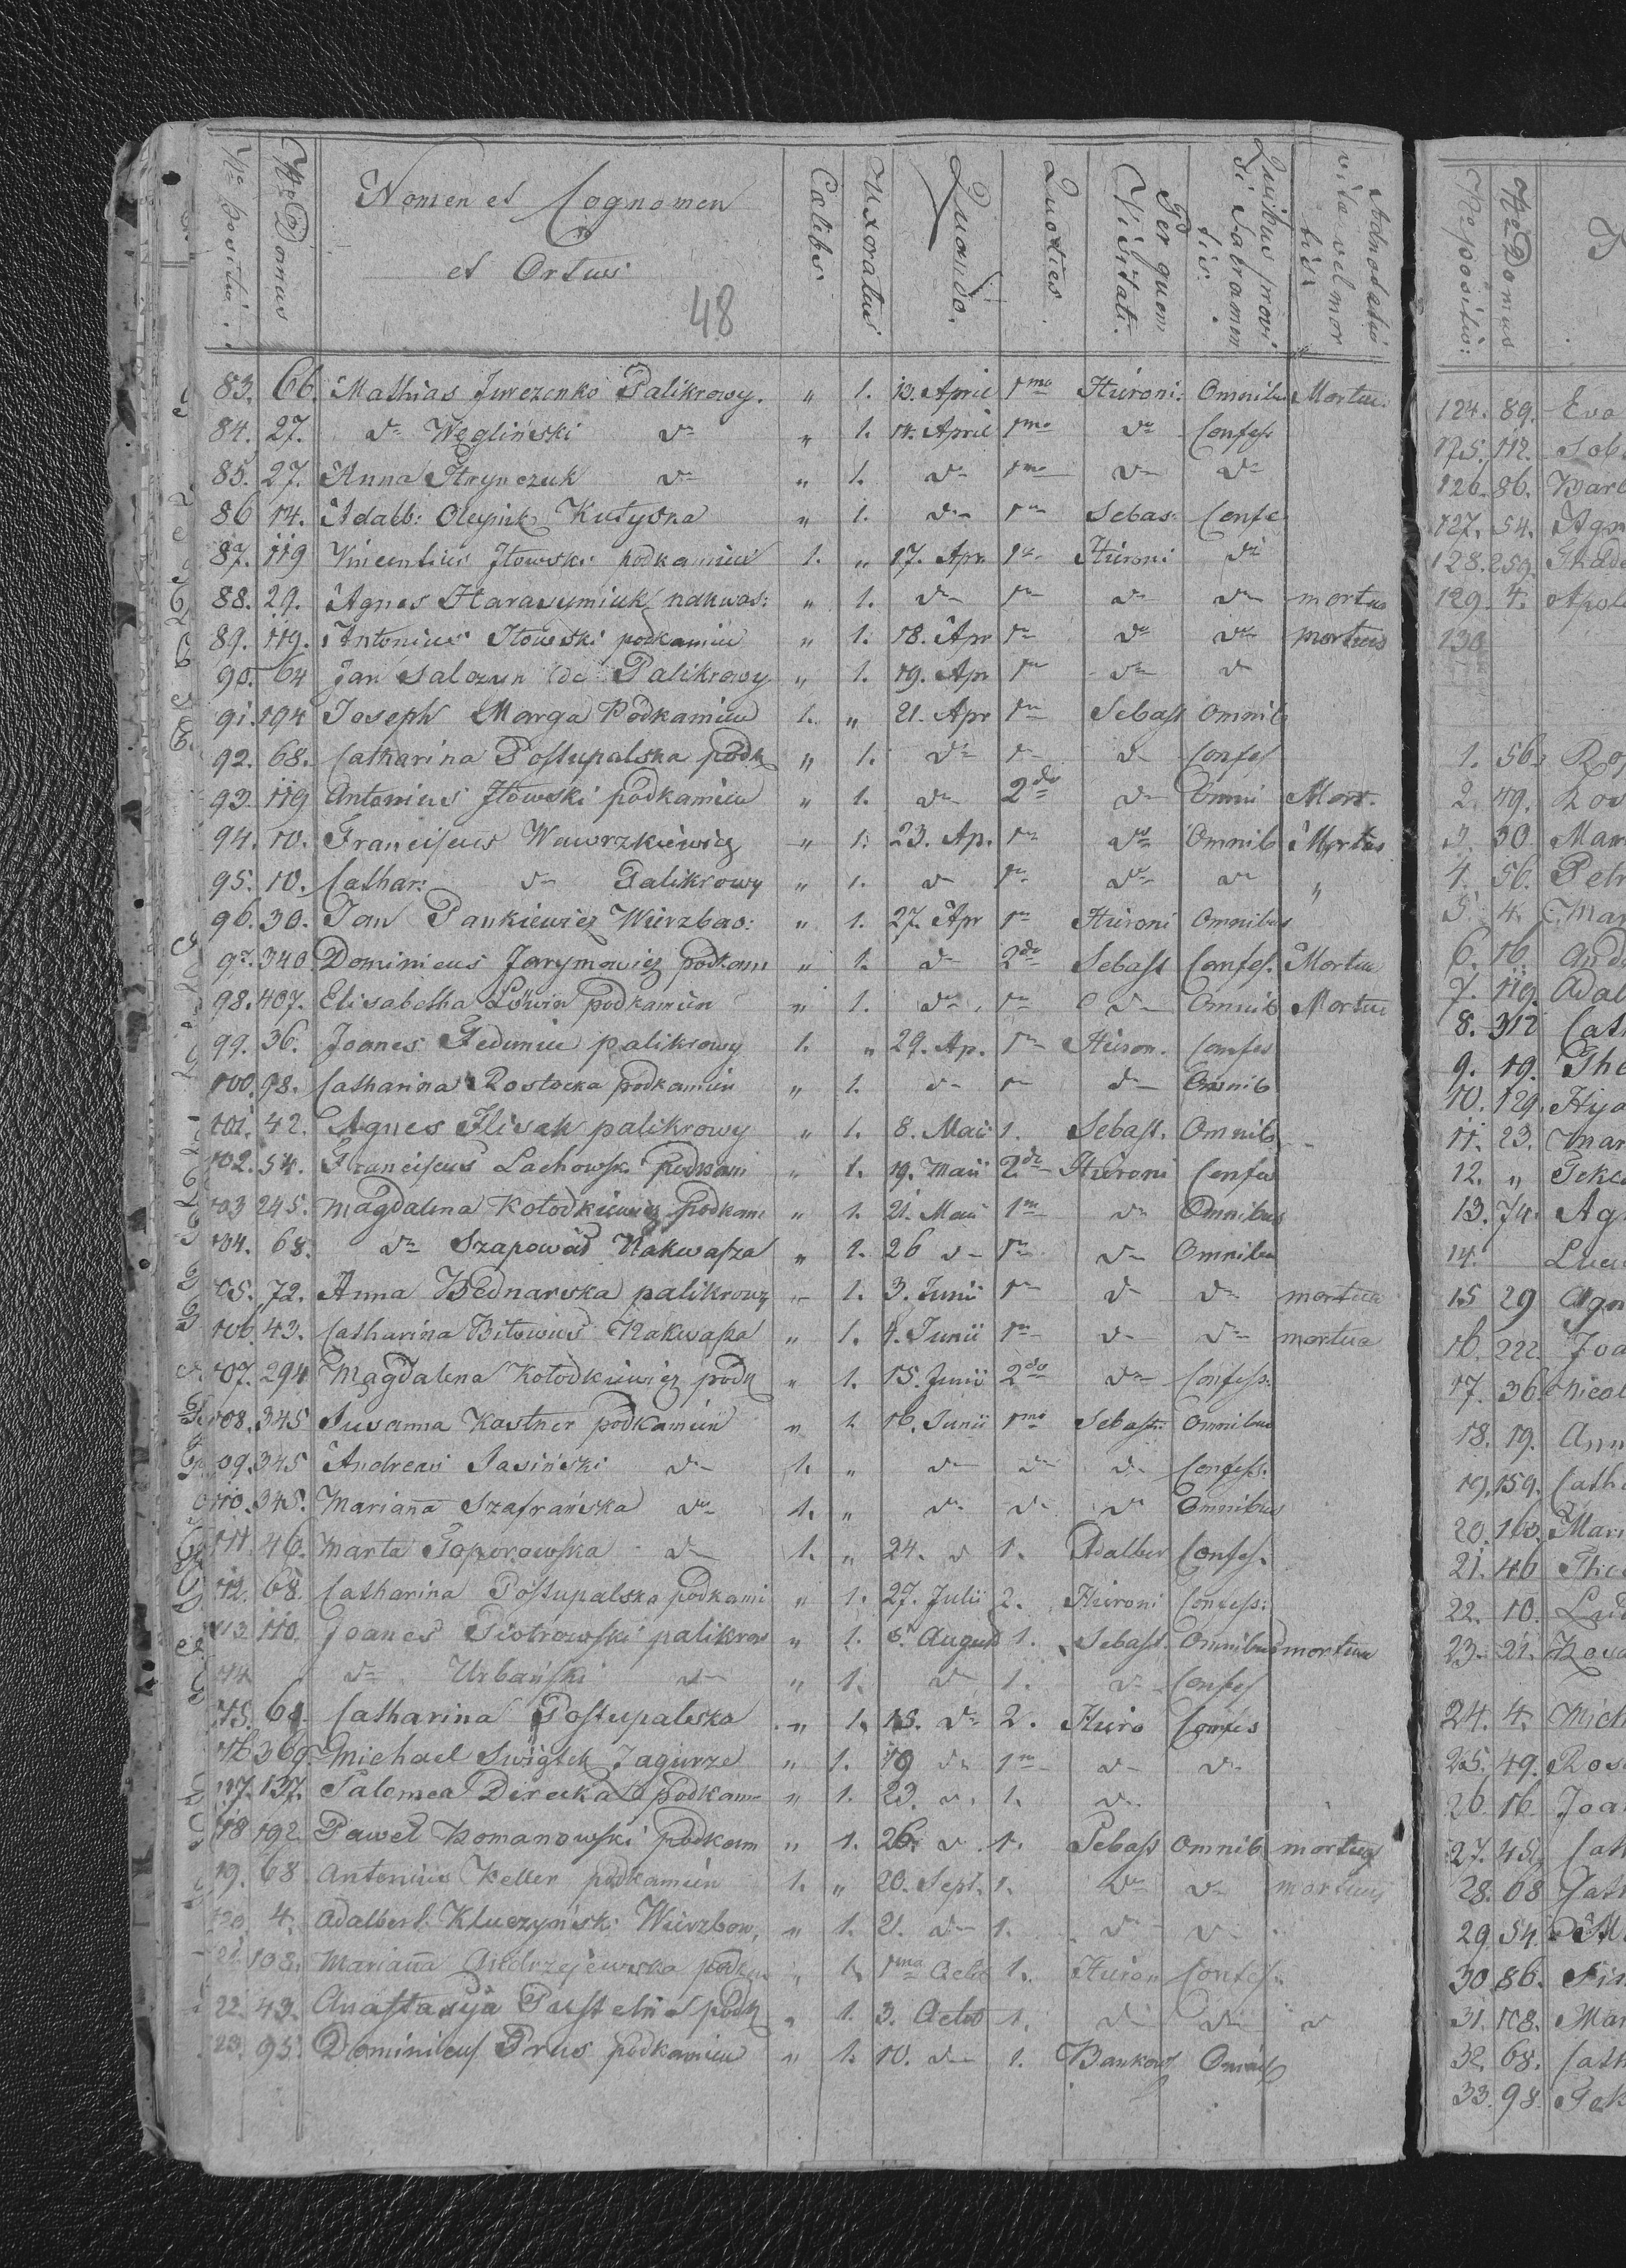 Nro Positio.
Nro Domus
Nomen et Cognomen
et Ortus
48
Cælebs.
Uxoratus
Quando.
Quoties.
Per quem
Visitati.
Quibus provi
si Sabramen
tis.
Adnotatio
vitæ vel mor
tis
83. 66. Mathias Jurczenko Palikrowy. " 1. 13. April 1mo Hieroni: Omnibu Mortuu.
84. 27. do Węgliński do " 1. 14. April 1mo do Confes
85. 27. Anna Hrynczuk do " 1. do 1mo do do
86 14. Adalb: Oleynik Kutyska " 1. do 1mo Sebas: Confe
87. 119 Vincentius Iłowski podkamien 1. " 17. Apr. 1mo Hieroni do
88. 29. Agnes Harasymiuk nakwas: " 1. do 1mo do do mortua
89. 119. Antonius Iłowski podkamień " 1. 18. Apr 1mo do do mortuus
90. 64 Jan Salozyn de Palikrowy " 1. 19. Apr 1mo do do
91. 194 Joseph Marga Podkamień 1. " 21. Apr 1mo Sebast Omnib
92. 68. Catharina Postupalska podk " 1. do 1mo do Confes
93. 119 Antonius Iłowski podkamień " 1. do 2do do Omni Mort.
94. 10. Franciscus Wawrzkiewicz " 1. 23. Ap. 1mo do Omnib Mortuus
95. 10. Cathar: do Palikrowy " 1. do 1mo do do "
96. 30. Jan Pankiewicz Wierzbao: " 1. 27. Apr 1mo Hieroni Omnibus
97. 340. Dominicus Jarymowicz podkam " 1. do 2do Sebast Confes. Mortuu
98. 407. Elisabetha Löwin podkamien " 1. do 1mo do Omnib Mortua
99. 36. Joanes Feduniu palikrowy 1. " 29. Ap. 1mo Hieron. Confes
100. 98. Catharina Rostocka podkamien " 1. do 1mo do Omnib
101. 42. Agnes Hlisak palikrowy " 1. 8. Maii 1. Sebast. Omnib
102. 54. Franciscus Lachowski podkami " 1. 19. Maii 2do Hieroni Confes
103 245. Magdalena Kołodkiewicz podkam " 1. 21. Maii 1mo do Omnibus
104. 68. do Szapowad Nakwasza " 1. 26 do 1mo do Omnibu
105. 72. Anna Bednarska palikrowy " 1. 3. Junii 1mo do do mortua
106. 43. Catharina Bitowius Nakwasza " 1. 4. Junii 1mo do do mortua
107. 294 Magdalena Kołodkiewicz podk " 1. 15. Junii 2do do Confess.
108. 345 Susanna Kastner podkamien " 1. 16. Junii 1mo Sebast: Omnibus
109. 345 Andreas Jasiński do 1. " do do do Confess.
110. 345. Marianna Szafrańska do 1. " do do do Omnibus
111. 46. Marta Toporowska do 1. " 24. do 1. Adalber Confes.
112. 68. Catharina Postupalska podkami " 1. 27. Julii 2. Hieroni Confess:
113 110. Joanes Piotrowski palikrow " 1. 6. August 1. Sebast. Omnibus mortuu
114 do Urbański do " 1. do 1. do Confes
115. 61. Catharina Postupalska " 1. 15. do 2. Hiero Confes
116 369. Michael Swiątek Zagurze " 1. 19 do 1mo do do
117. 137. Salomea Direcka podkam " 1. 23. do 1. do
118 192. Paweł Romanowski podkam " 1. 26. do 1. Sebast Omnib mortuus
119. 68 Antonius Keller podkamien 1. " 20. Sept. 1. do do mortuus
120. 4. Adalbert Kluczyński Wierzbow, " 1. 21. do 1. do do
121. 108. Marianna Andrzejewska podkam " 1. 1ma Octob 1. Hieron Confes.
122. 43. Anastasya Pustelni podk " 1. 3. Octob 1. do do do
123. 95. Dominicus Prus podkamien " 1. 10. do 1. Bankow
Nro positio:
Nro Domus
124. 89. Eva
125. 112. Sob
126. 86. Barb
127. 54. Agn
128. 259. Thade
129. 4. Apolo
130
1. 56.
2. 119.
3. 30. Mar
4. 56. Petr
5. 4. Mar
6. 16. And
7. 119. Adal
8. 312 Cat
9. 19. The
10. 129. Hya
11. 23. Mar
12. " Tekl
13. 74. Ag
14.
15 29 Agn
16. 222. Joa
17. 36. Nicol
18. 19. Ann
19. 159. Cath
20. 160. Mari
21. 46
22. 10. Lud
23. 21.
24. 4. Mich
25. 49. Ros
26. 16. Joa
27. 45. Cath
28. 68 Cath
29. 54.
30. 86.
31. 108. Mar
32. 68. Cath
33. 98. Tek